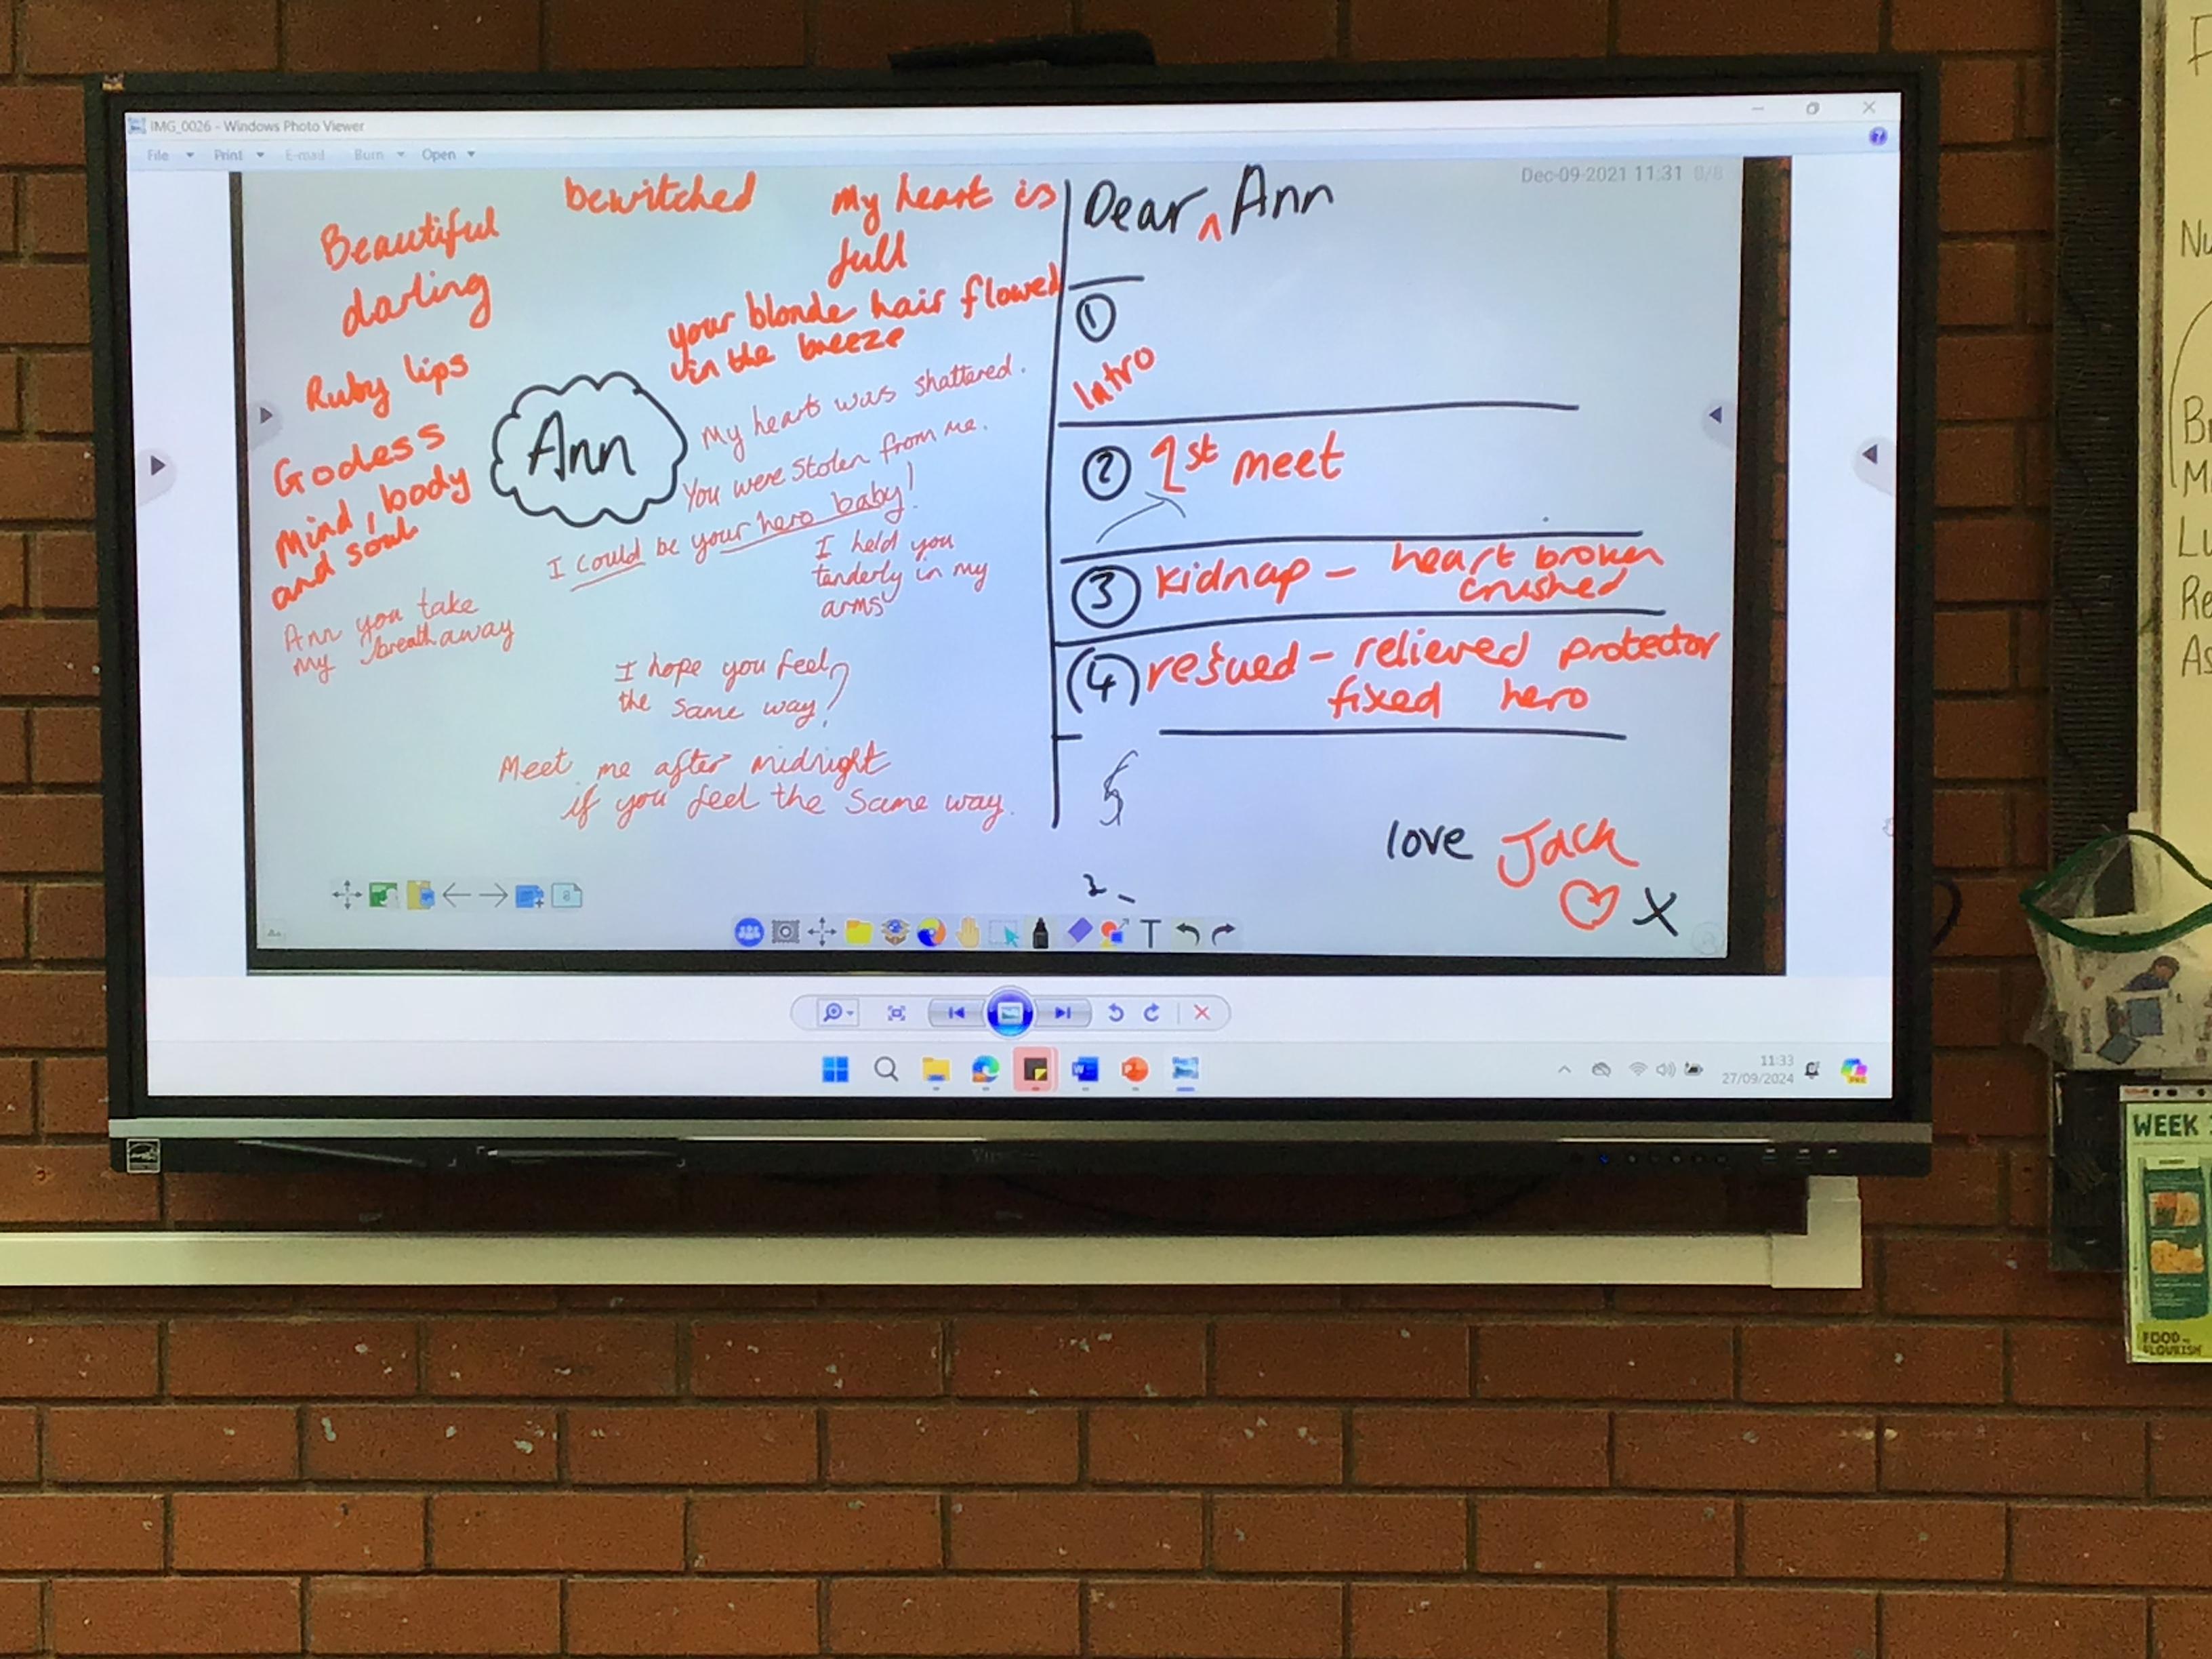 IMG_0026 - Windows Photo Viewer
File Print E-mail Burn Open
Dec-09-2021 11:31 8/8
bewitched
My heart is
full
Beautiful
darling
your blonde hair flowed
in the breeze
Ruby lips
My heart was shattered.
Godess
You were stolen from me.
Mind, body
and soul
Ann
I could be your hero baby!
I held you
tenderly in my
arms
Ann you take
my breath away
I hope you feel
the same way?
Meet me after midnight
if you feel the same way.
Dear ^ Ann
1
Intro
2 1st meet
3 kidnap - heart broken
crushed
4 rescued - relieved protector
fixed hero
5
love Jack
x
T
11:33
27/09/2024
Nu
B
M
Lu
Re
As
WEEK
FOOD
FLOURISH